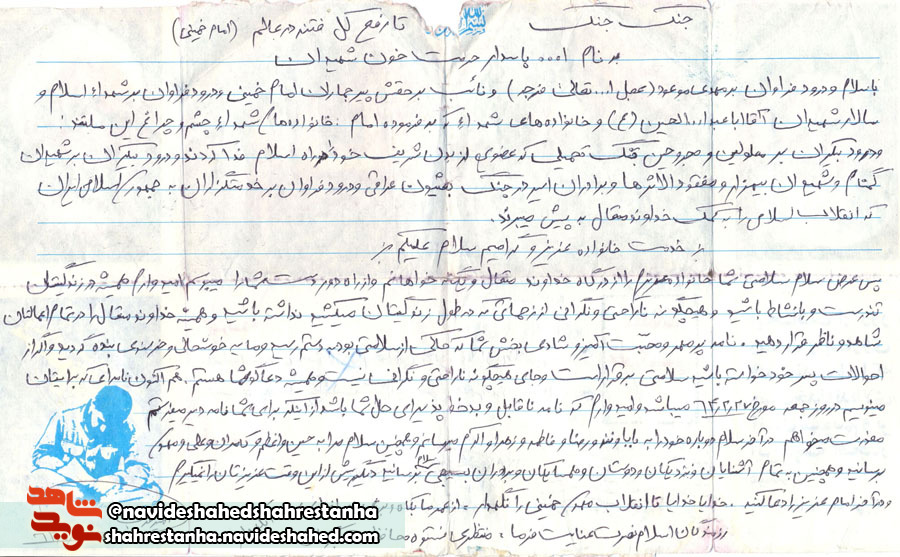 جنگ جنگ تا رفع کل فتنه در عالم (امام خمینی)
به نام ا... پاسدار حرمت خون شهیدان
با سلام و درود فراوان بر مهدی موعود (عجل ا... تعالی فرجه) و نائب بر حقش پیر جماران امام خمینی و درود فراوان بر شهداء اسلام و
سالار شهیدان آقا اباعبدا... الحسین (ع) و خانواده های شهداء که به فرموده امام : خانواده های شهداء چشم و چراغ این ملتند :
و درود بیکران بر معلولین و مجروحین جنگ تحمیلی که عضوی از بدن شریف خود در راه اسلام فدا کردند و درود بیکران به شهیدان
گمنام و شهیدان بیمزار و مفقودالاثرها و برادران اسیر در جنگ بعثیون عراقی و درود فراوان بر خدمتگزاران به جمهوری اسلامی ایران
که انقلاب اسلامی را به کمک خداوند متعال به پیش میبرند.
خدمت خانواده عزیز و گرامیم سلام علیکم
پس از عرض سلام سلامتی شما خانواده عزیزم را از درگاه خداوند متعال و یگانه خواهانم و از راه دور دست شما را میبوسم امیدوارم همیشه در زندگیتان
تندرست و با نشاط باشید و هیچگونه ناراحتی و نگرانی از زحماتی که در طول زندگیتان میکشید نداشته باشید و همیشه خداوند متعال را در تمام اعمالتان
شاهد و ناظر قرار دهید . نامه پر مهر و محبت آمیز و شادی بخش شما که حاکی از سلامتی بود به دستم رسید و مایه خوشحالی و خرسندی بنده گردید و اگر از
احوالات پسر خود خواسته باشید سلامتی برقرار است و جای هیچگونه ناراحتی و نگرانی نیست و همیشه دعاگوی شما هستم . هم اکنون نامه ای که برایتان
مینویسم در روز جمعه مورخ ۶۴/۲/۲۷ میباشد و امیدوارم که نامه ناقابل و بد خط پذیرای حال شما باشد از آنکه برای شما نامه دیر میفرستم
معذرت میخواهم در آخر سلام دوباره خود را به بابا و ننه و رضا و فاطمه و زهرا و اکرم میرسانم و همچنین سلام مرا به حسن و اعظم و کامران و علی و
برسانید و همچنین به تمام آشنایان و نزدیکان و دوستان و همسایگان و برادران بسیجی سلام برسانید دیگر بیش از این وقت عزیزتان را نمیگیرم
و در آخر امام عزیز را دعا کنید . خدایا خدایا تا انقلاب مهدی خمینی را نگهدار . از عمر ما بکاه و
رزمندگان اسلام نصرت عنایت فرما .
شاهد
نوید
@navideshahedshahrestanha
shahrestanha.navideshahed.com